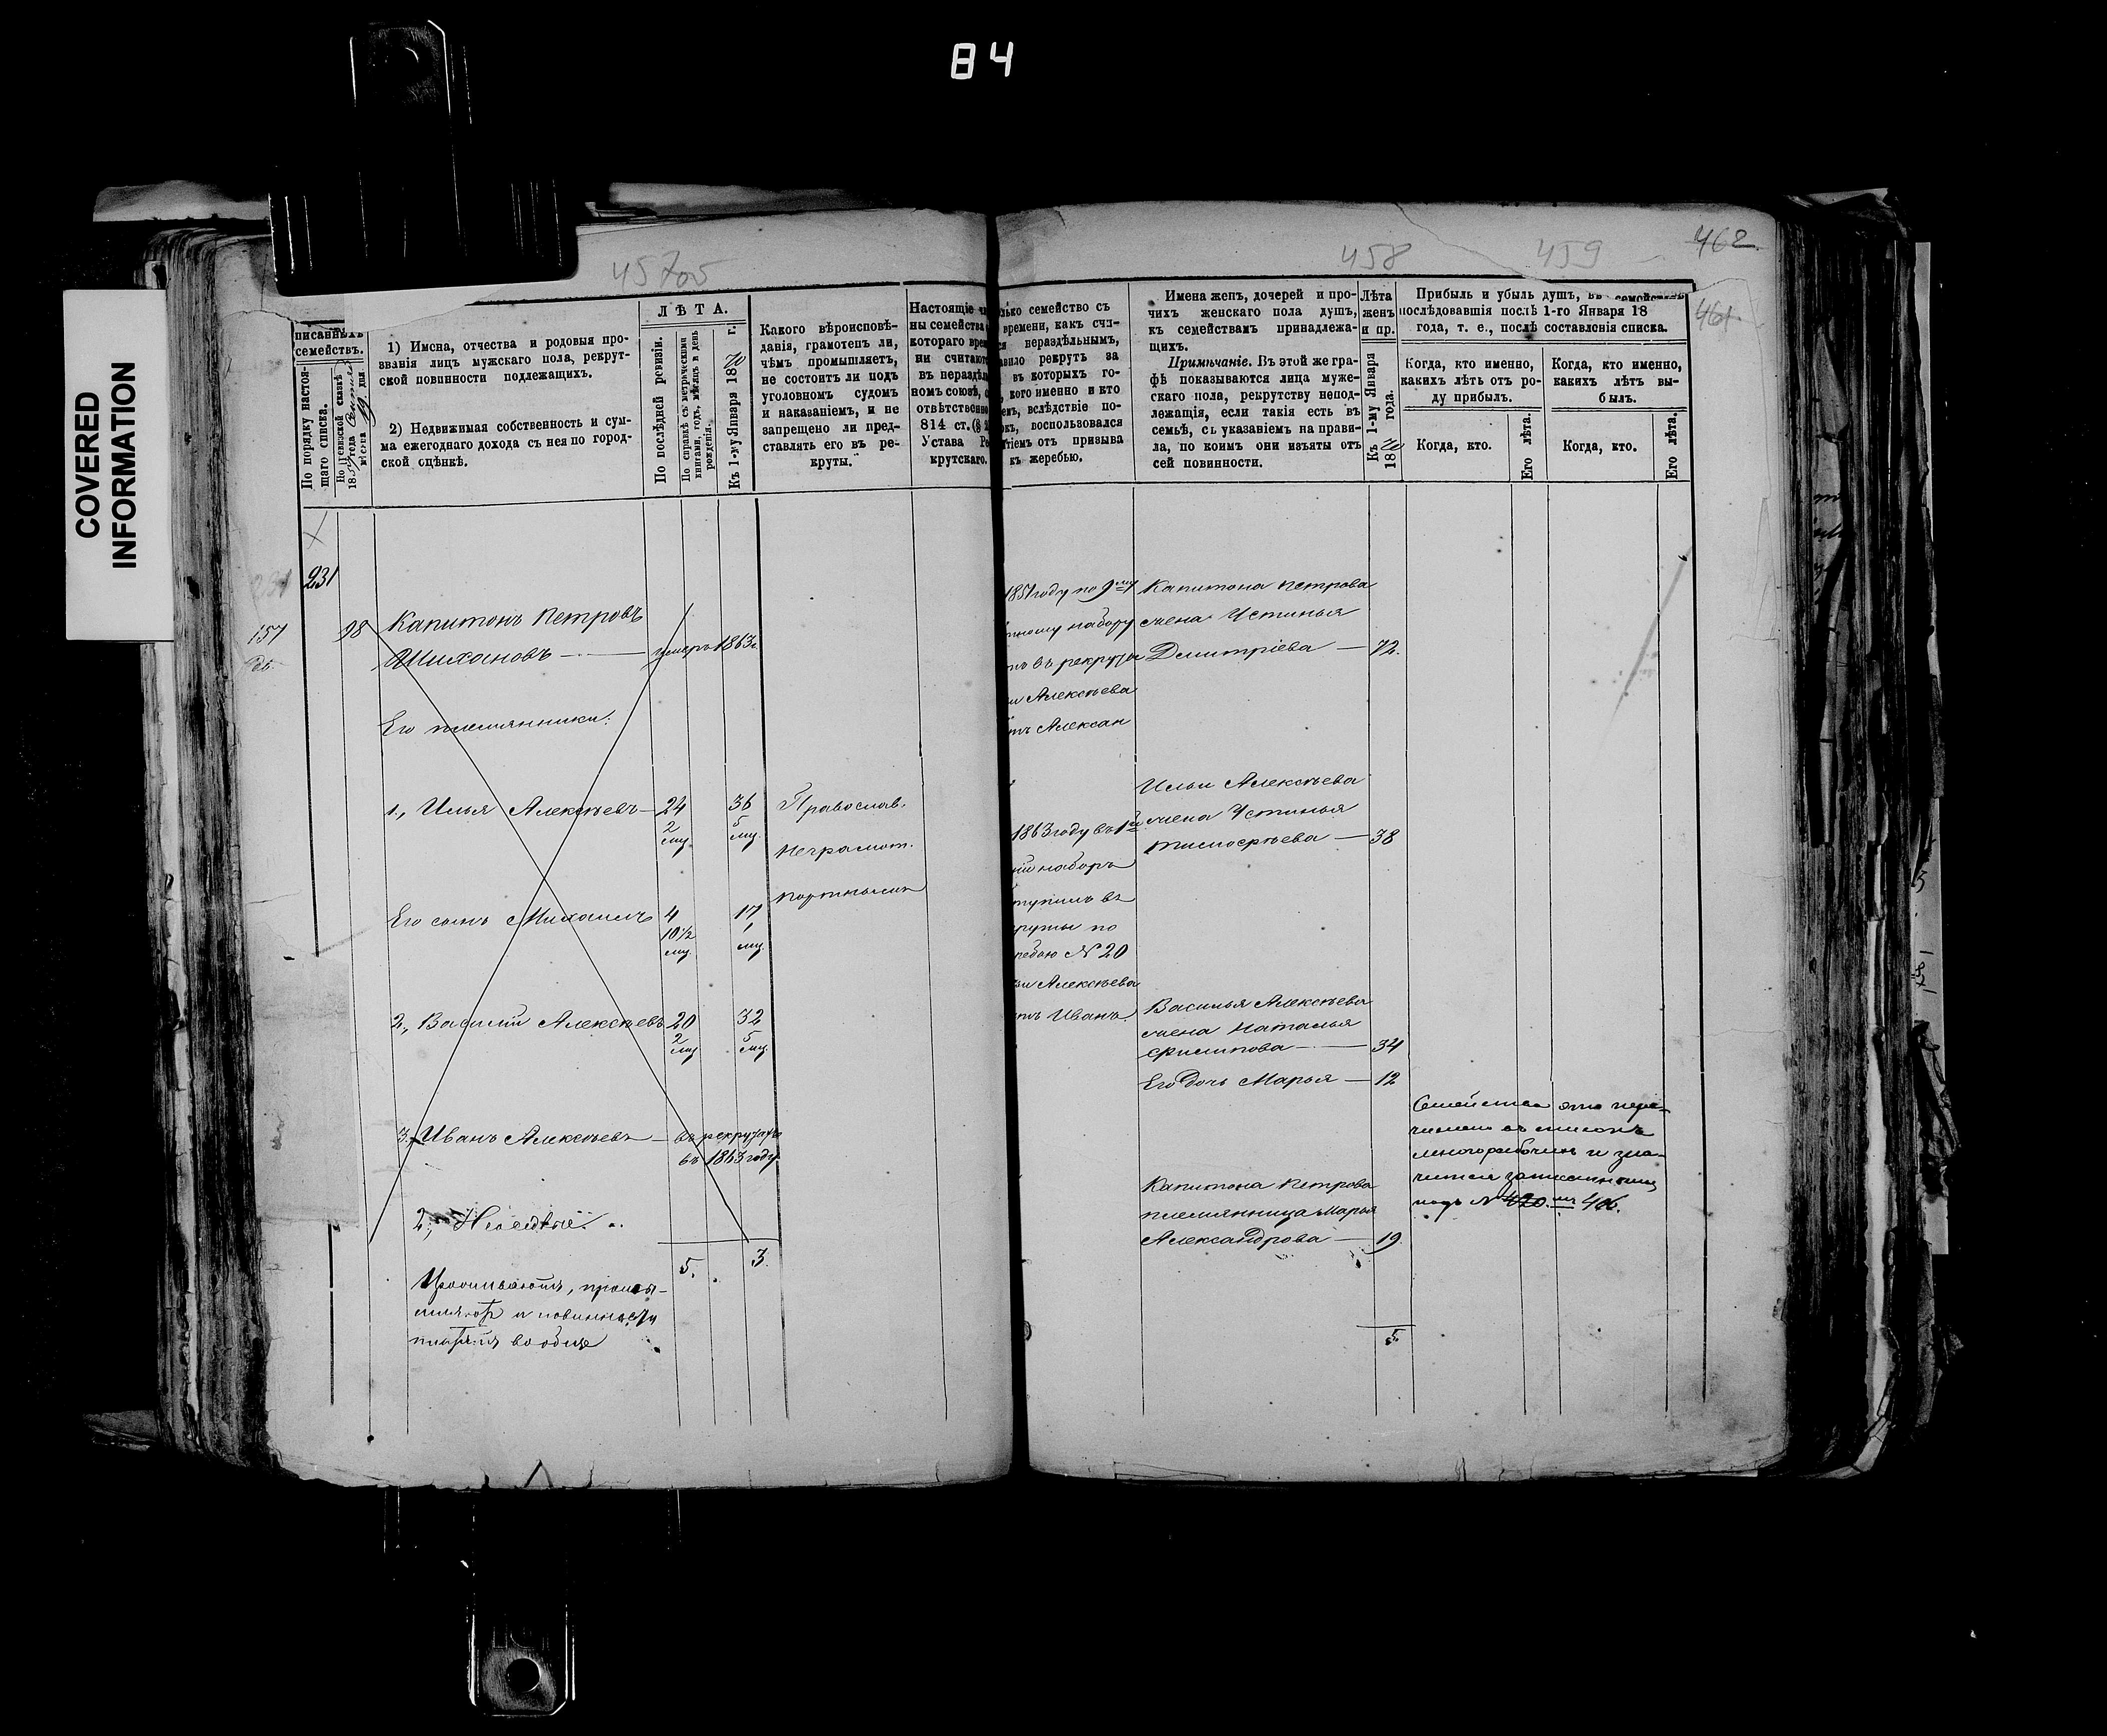 84
COVERED
INFORMATION
457об
458
459
462
461
писанныхъ
семействъ.
По порядку настоя-
щаго списка.
По ревизской сказкѣ
1) Имена, отчества и родовыя про-
званія лицъ мужскаго пола, рекрут-
ской повинности подлежащихъ.
2) Недвижимая собственность и сум-
ма ежегоднаго дохода съ нея по город-
ской оцѣнкѣ.
ЛѢТА.
По послѣдней ревизіи.
По справкѣ съ метрическими
книгами, годъ, мѣсяцъ и день
рожденія.
Къ 1-му Января 1870 г.
Какого вѣроисповѣ-
данія, грамотенъ ли,
чѣмъ промышляетъ,
не состоитъ ли подъ
уголовнымъ судомъ
и наказаніемъ, и не
запрещено ли пред-
ставлять его въ ре-
круты.
Настоящіе
ны семейства
котораго врем
ни считают
въ нераздѣл
номъ союзѣ,
отвѣтственно
814 ст.
Устава Ре
крутскаго.
лько семейство съ
времени, какъ счи-
ся нераздѣльнымъ,
авило рекрутъ за
въ которыхъ го-
, кого именно и кто
емъ, вслѣдствіе по-
окъ, воспользовался
тіемъ отъ призыва
къ жеребью.
Имена женъ, дочерей и про-
чихъ женскаго пола душъ,
къ семействамъ принадлежа-
щихъ.
Примѣчаніе. Въ этой же гра-
фѣ показываются лица муже-
скаго пола, рекрутству непод-
лежащія, если такія есть въ
семьѣ, съ указаніемъ на прави-
ла, по коимъ они изъяты отъ
сей повинности.
Лѣта
женъ
и пр.
Къ 1-му Января
1870 года.
Прибыль и убыль душъ, въ семействѣ
послѣдовавшія послѣ 1-го Января 18
года, т. е., послѣ составленія списка.
Когда, кто именно,
какихъ лѣтъ отъ ро-
ду прибылъ.
Когда, кто именно,
какихъ лѣтъ вы-
былъ.
Когда, кто.
Его лѣта.
Когда, кто.
Его лѣта.
231
231
157
98
Капитонъ Петровъ
Шихановъ — умеръ 1863г.
Его племянники:
1., Илья Алексѣевъ — 24 36
2 мц. 5 мц.
Православ.
неграмот.
портнымъ
Его сынъ Михаилъ 4 17
10½ мц. 1 мц.
2., Василій Алексѣевъ 20 32
2 мц 5 мц.
3., Иванъ Алексѣевъ — въ рекрутахъ
въ 1863 году
2., Неимѣютъ.
5. 3.
Проживаютъ, промы-
шляютъ и повинности
платятъ вообще
1851 году по 9му
тному набору
въ рекруты
и Алексѣева
тъ Алексан
1863 году въ 1й
ій наборъ
тупилъ въ
руты по
ребью № 20
ьи Алексѣева
тъ Иванъ
Капитона Петрова
жена Устинья
Дмитріева — 72.
Ильи Алексѣева
жена Устинья
Тимофѣева — 38
Василья Алексѣева
жена Наталья
Филипова — 34
Его дочь Марья — 12
Капитона Петрова
племянница Марья
Александрова — 19.
5.
Семейство это пере-
числено въ списокъ
многорабочихъ и зна-
чится записаннымъ
подъ № 406.